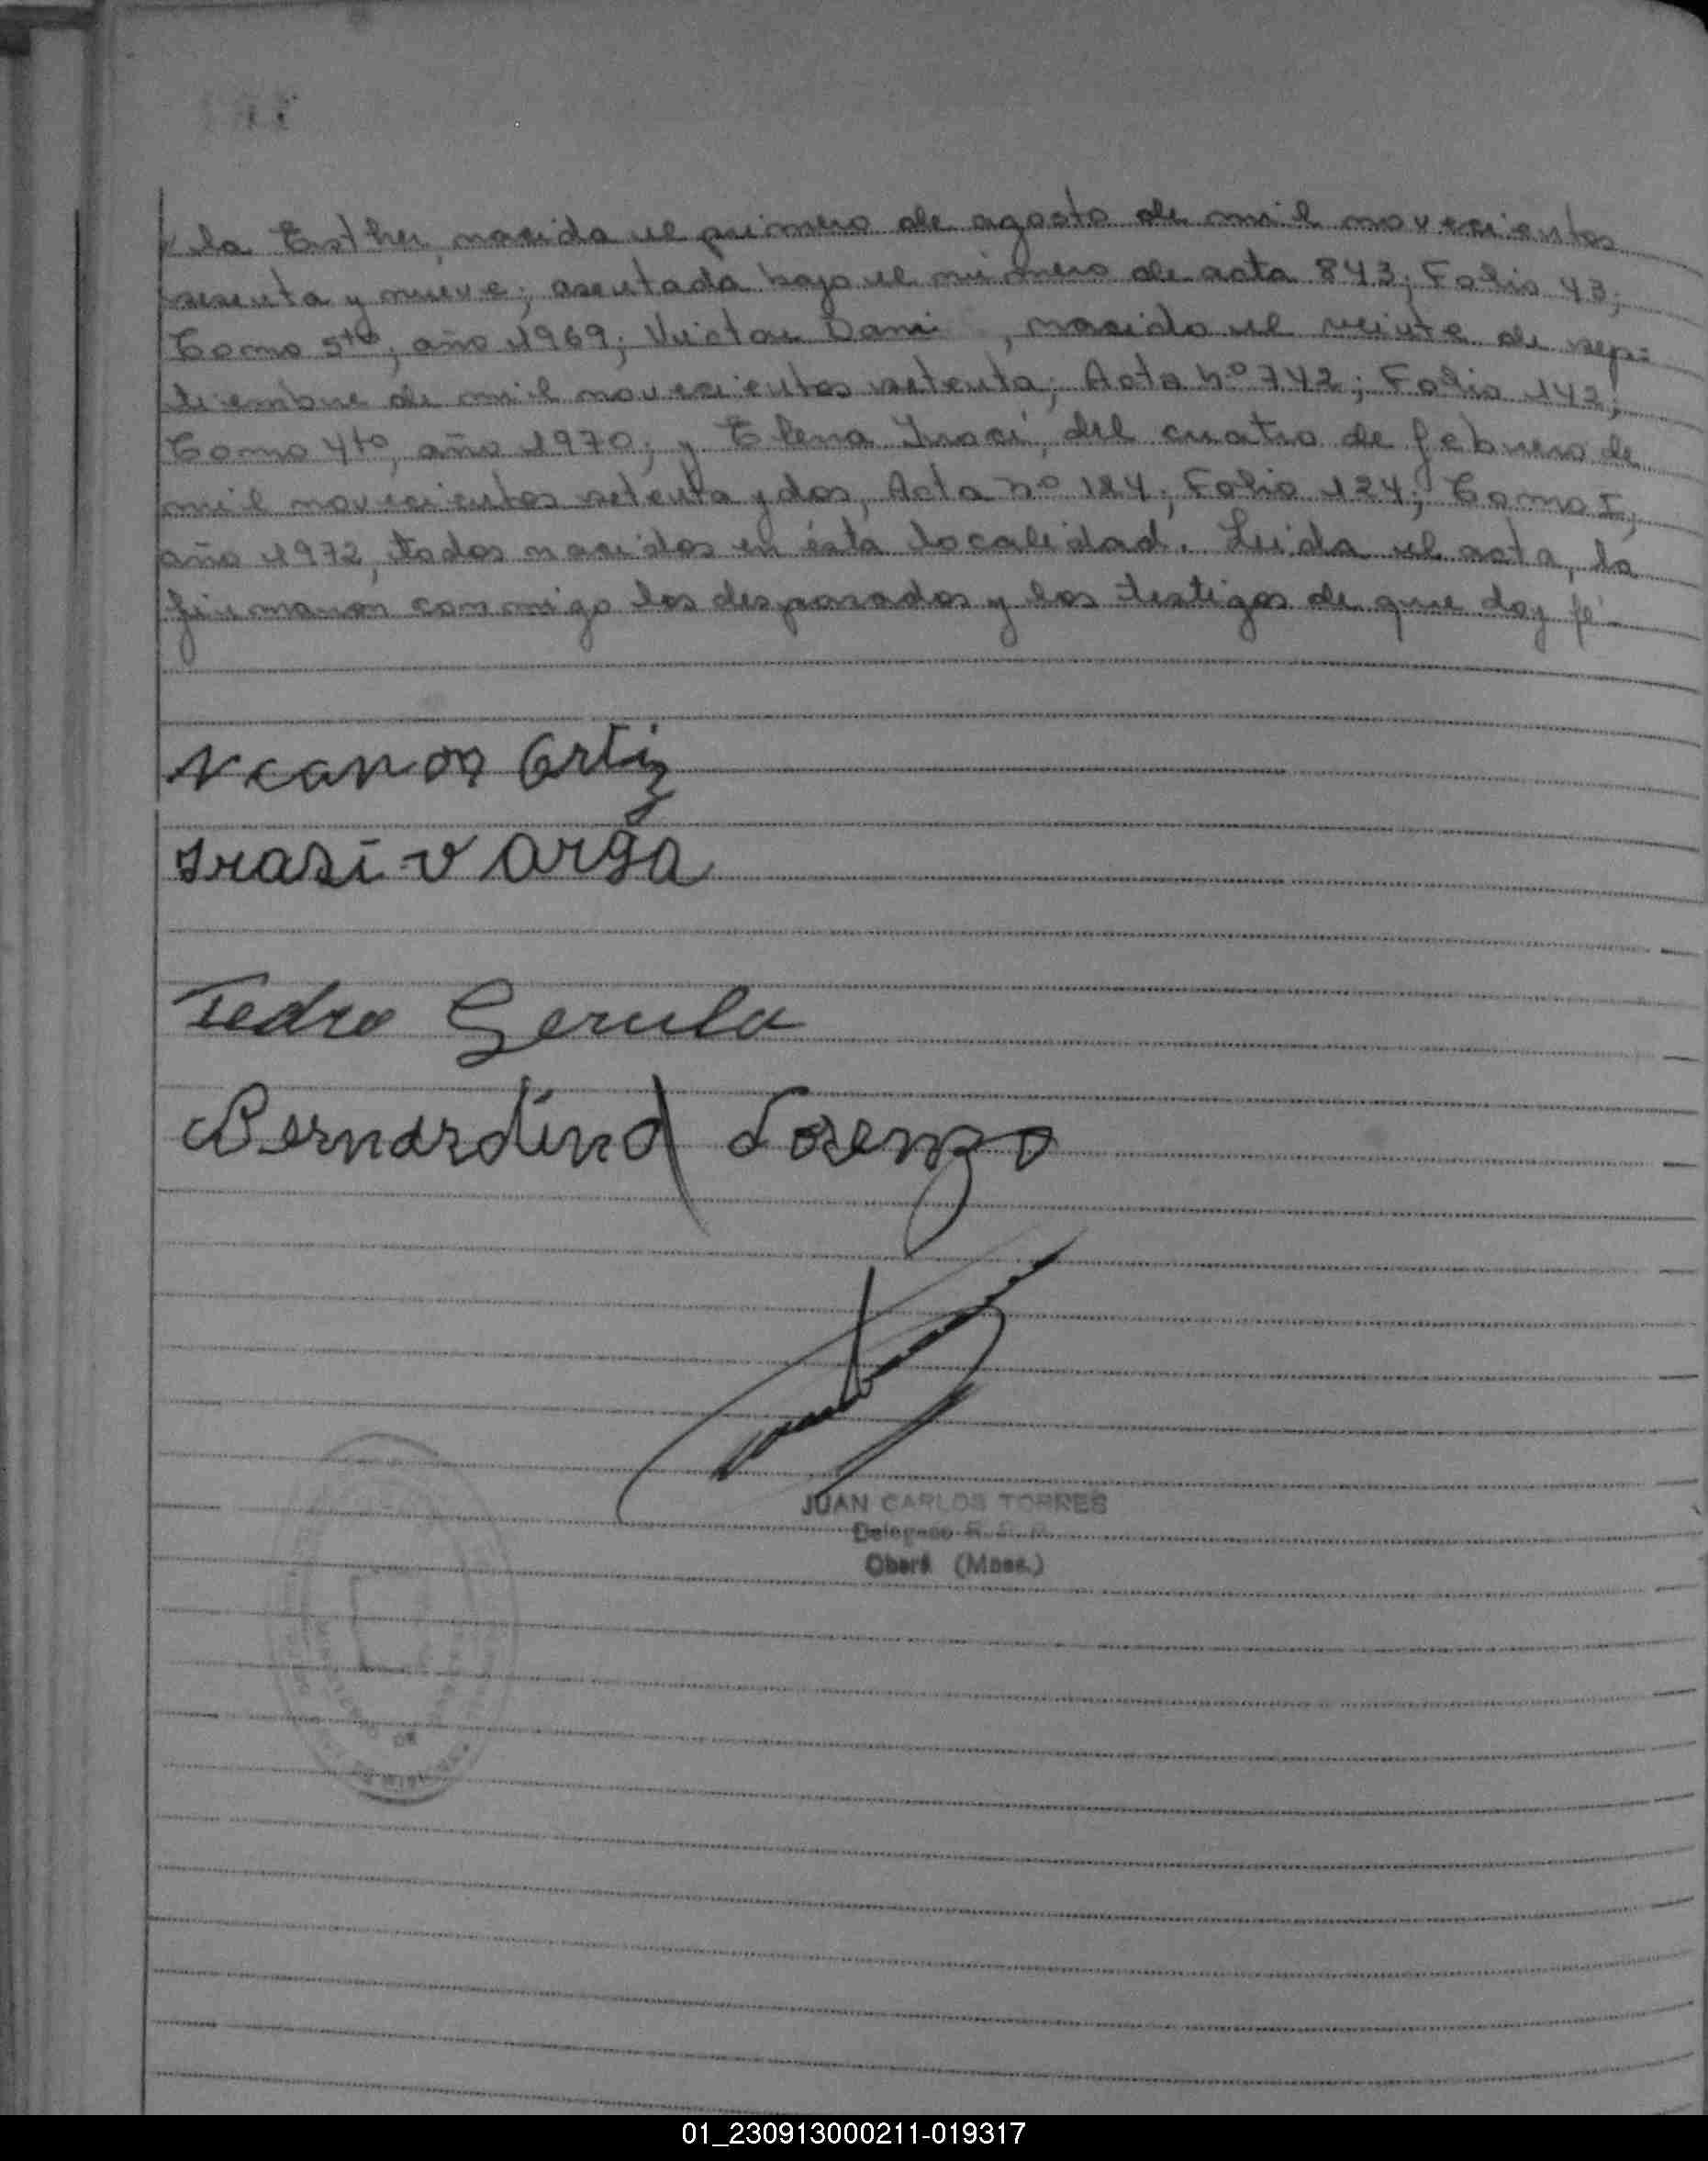 la Esther, nacida el primero de agosto de mil novecientos
sesenta y nueve; asentada bajo el número de acta 843; Folio 43;
Tomo 5to, año 1969; Victor Dani , nacido el veinte de sep-
tiembre de mil novecientos setenta; Acta nº 742; Folio 142;
Tomo 4to, año 1970; y Elena Iraci, del cuatro de febrero de
mil novecientos setenta y dos, Acta nº 124; Folio 124; Tomo I,
año 1972, todos nacidos en ésta localidad. Leida el acta, la
firmaron conmigo los desposados y los testigos de que doy fé
Ncanon Ortiz
Irasi varga
Pedro Gerula
Bernardino Lorenzo
JUAN CARLOS TORRES
Delegado
Oberá (Mnes.)
MINISTERIO DE
01_230913000211-019317